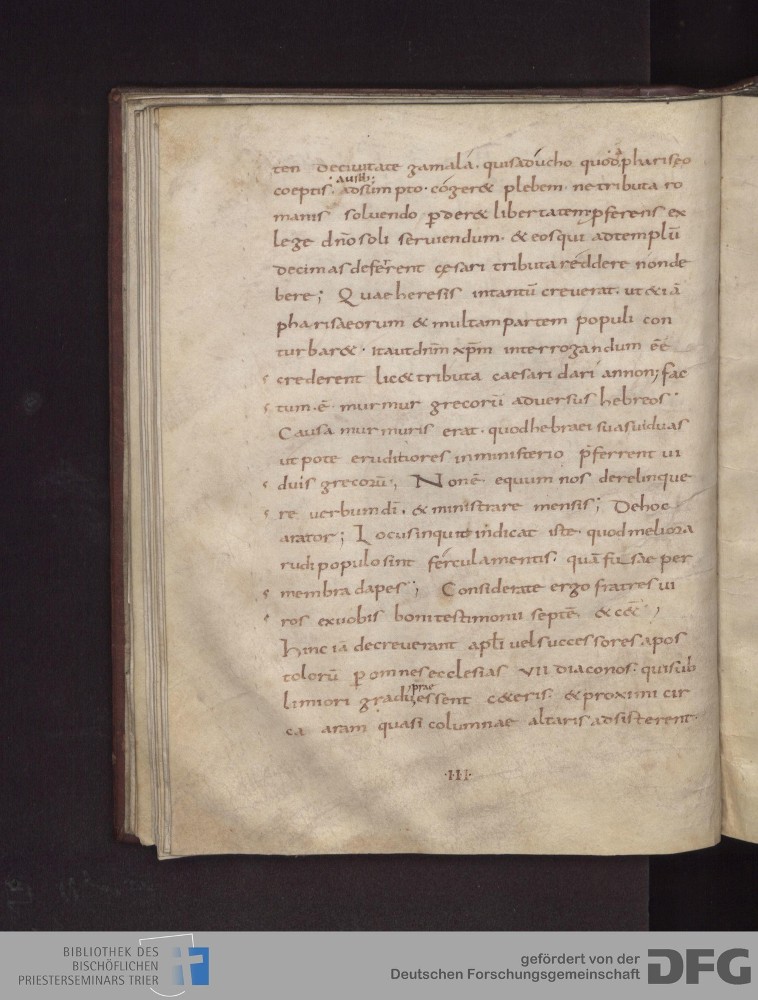 ten decivitate gamala. quisaducho quodā phariseo
coeptis. adsumpto. cogeret plebem. netributa ro
ausib;
manis solvendo pderet libertatem pferens ex
lege dño soli serviendum. & eos qui adtemplū
decimas deferrent cęsari tributa reddere nonde
bere; Quae heresis intantū creverat. ut & iā
pharisaeorum & multam partem populi con
turbaret. ita ut dnm xpm interrogandum eē
crederent lic& tributa caesari dari annon; fac
tum. ē. murmur grecorū adversus hebreos.
Causa murmuris erat. quod hebraei suas viduas
ut pote eruditiores inministerio pferrent vi
duis grecorū; Non ē. equum nos derelinque
re verbum dī. & ministrare mensis; Dehoc
arator; Locus inquit indicat iste. quod meliora
rudi populo sint fercula mentis. quā fusae per
membra dapes; Considerate ergo fratres vi
ros ex vobis boni testimonii septē & cēt;
Hinc iā decreverant aplī vel successores apos
tolorū p omnes ecclesias VII diaconos. qui sub
limiori gradu essent ceteris. & proximi cir
prae
ca aram quasi columnae altaris adsisterent.
·III·
BIBLIOTHEK DES
BISCHÖFLICHEN
PRIESTERSEMINARS TRIER
gefördert von der
Deutschen Forschungsgemeinschaft
DFG